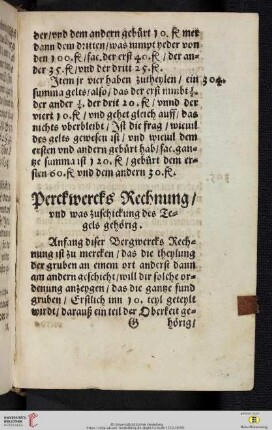 der/vnd dem andern gebürt 10. fl mer
dann dem dritten/was nimpt yeder von
den 100. fl/fac. der erst 40. fl/ der an-
der 35. fl/vnd der dritt 25. fl.
Item jr vier haben zutheylen/ ein
summa gelts/also/das der erst nimbt
der ander ¼. der drit 20. fl/ vnnd der
viert 10. fl/ vnd gehet gleich auff/ das
nichts vberbleibt/ Ist die frag/ wieuil
des gelts gewesen ist/ vnd wieuil dem
ersten vnd andern gebürt hab/fac. gan-
tze summa ist 120. fl/ gebürt dem er-
sten 60. fl vnd dem andern 30. fl.
Perckwercks Rechnung/
vnd was zuschickung des Te-
gels gehörig.
Anfang diser Bergwercks Rech-
nung ist zu mercken/ das die theylung
der gruben an einem ort anderst dann
am andern geschicht/ will dir solche or-
denung anzeygen/ das die gantze fund
gruben/ Erstlich inn 10. teyl geteylt
wirdt/ darauß ein teil der Oberkeit ge-
G hörig/